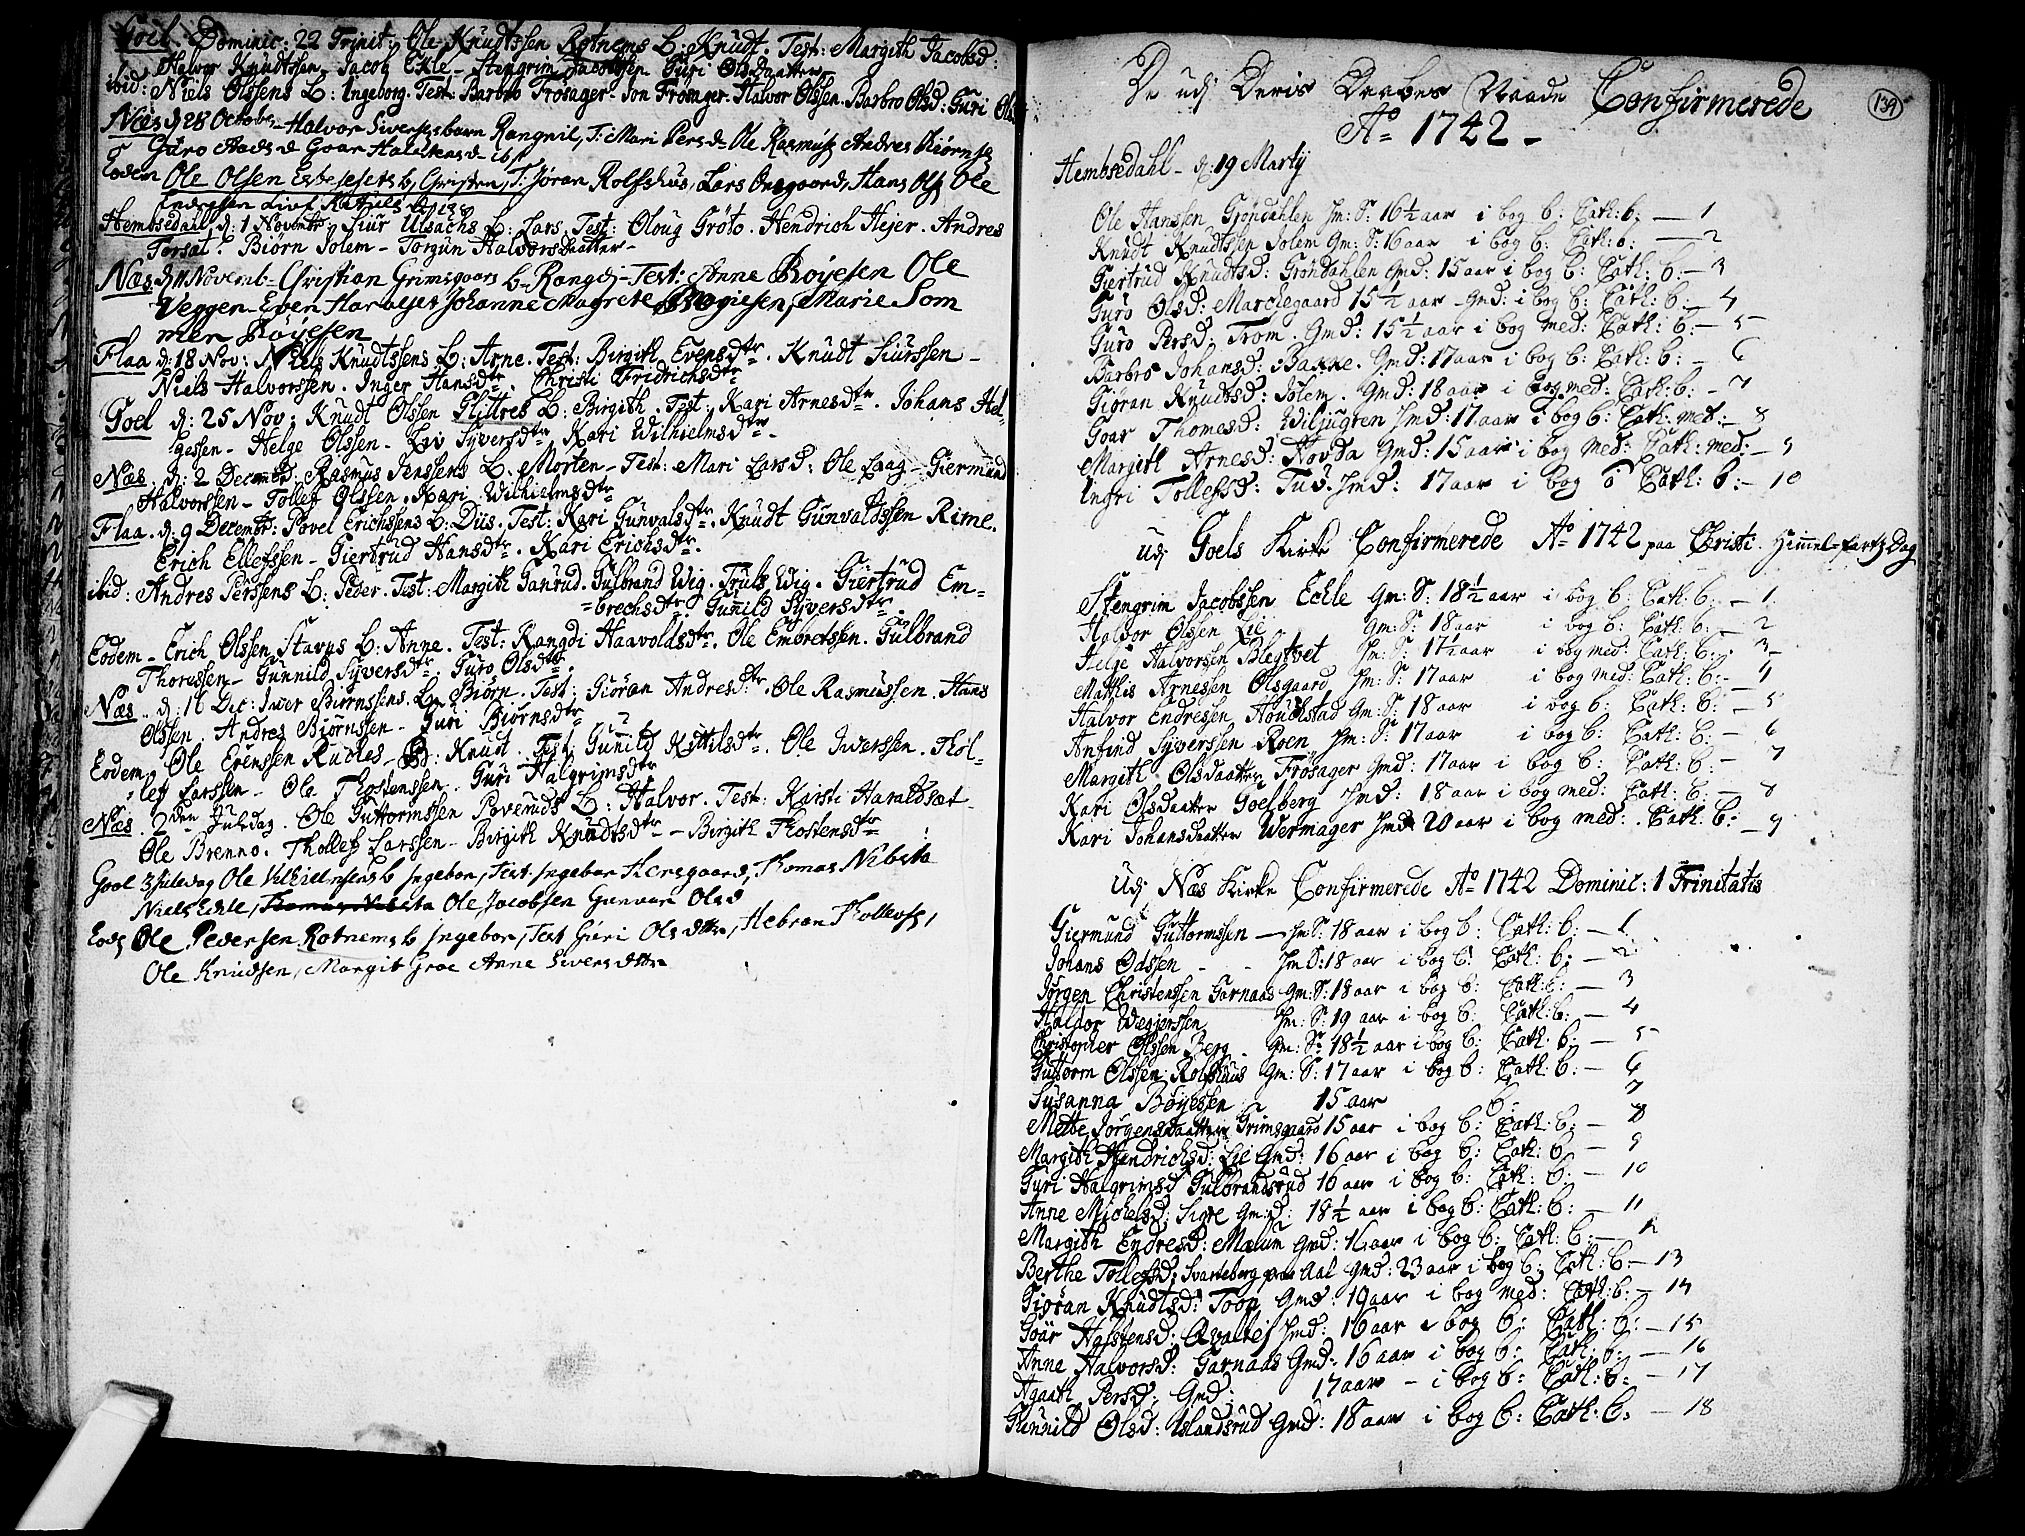 Goel. Dominic: 22 Trinit: Ole Knudtssen Rotnems L: Knudt. Test: Margith Jacobsd:
Halvor Knudtssen. Jacob Ekle. Stengrim Jacobssen Guri Olsdaatter
ibid: Niels Olssens L: Ingeborg. Test: Barbro Frøsager. Jon Frøsager. Halvor Olssen. Barbro Olsd: Guri Ols
Næs d 28 Octobr Halvor Siversens barn Rangnil, T: Mari Persd Ole Rasmuss Andres Biørnss
Guro Aadsd Goar Halstensd
Eodem Ole Olsen b Christen, T: Jøran Rolfshus, Lars Onsgoord, Hans Ols Ole

Hembsedahl, d: 1 Novembr Siur Ulsachs L: Lars. Test: Oloug Grøto. Hendrich Hejer. Andres
Torset. Biørn Jolem. Torgun Halvorsdaatter
Næs d 11 Novemb Christian Grimsgaars b Rangdj Test: Anne Bøyesen Ole
Veggen Even Haraldset Johanne Magrete Bøgiesen, Marie Som
mer Bøyesen
Flaa d: 18 Nov: Niels Knudtssens L: Arne. Test: Birgith Evensdtr. Knudt Siurssen
Niels Halvorssen. Inger Hansdtr. Christi Fridrichsdtr
Goel d: 25 Nov: Knudt Olssen Flittres L: Birgith. Test: Kari Arnesdtr. Johans Hel-
gessen. Helge Olssen. Liv Syversdtr. Kari Wilhielmsdtr.
Næs d: 2 Decembr: Rasmus Jenssens L: Morten. Test: Mari Larsd: Ole Laag. Giermund
Halvorssen. Tollef Olssen. Kari Wilhielmsdtr
Flaa. d: 9 Decembr: Povel Erichssens L: Diis. Test: Kari Gunvalsdtr. Knudt Gunvaldssen Rime.
Erich Ellefssen. Giertrud Hansdtr. Kari Erichsdtr.
ibid: Andres Perssens L: Peder. Test: Margith Sanrud. Gulbrand Wig. Truls Wig. Giertrud Em-
brechsdtr Gunild Syversdtr.
Eodem. Erich Olssen Stavns L: Anne. Test: Rangdi Haavoldsdtr. Ole Embretssen. Gulbrand
Thoressen. Gunnild Syversdtr. Guro Olsdtr.
Næs. d: 16 Dec: Iver Biørnssens L: Biørn. Test: Giøran Andresdtr. Ole Rasmussen. Hans
Olssen. Andres Biørnssen. Guri Biørnsdtr
Eodem. Ole Evenssen Rudies L: Knudt. Test: Gunild Kittilsdtr. Ole Iverssen. Thol-
lef Larssen. Ole Thostenssen. Guri Halgrimsdtr
Næs. 2den Juledag. Ole Guttormssen Poveruds L: Halvor. Test: Karsti Haraldset
Ole Brenno. Thollef Larssen. Birgith Knudtsdtr. Birgith Thostensdtr
Gool 3 Juledag Ole Vilhilmsens b Ingebor, Test: Ingebor Thorsgaard, Thomas Nibsta
Niels Echle, Thomas Nibsta Ole Jacobsen Gunvor Olsd
Eod Ole Pedersen Rotnems b Ingebor, Test Guri Olsdttr, Hebran Thollevss,
Ole Knudsen, Margit Groe Anne Siversdttr
De udj Deris Daabes Naade Confirmerede
139
Ao 1742
Hembsedahl d: 19 Martij
Ole Hanssen Grøndahlen Hm: S: 16½ aar i bog b: Cath: b: — 1
Knudt Knudtssen Jolem Gm: S: 16 aar i bog b: Cath: b: — 2
Giertrud Knudtsd: Grøndahlen Gmd: 15 aar i bog b: Cath: b: — 3
Guro Olsd: Marchegaard 15½ aar Gmd: i bog b: Cath: b: — 4
Guro Persd: Trom. Gmd: 15½ aar i bog med: Cath: b: — 5
Barbro Johansd: Bakke. Gmd: 17 aar i bog b: Cath: b: — 6
Giøran Knudtsd: Jolem. Gmd: 18 aar i bog med: Cath: b: — 7
Goar Thomesd: Wiljugren Hmd: 17 aar i bog b: Cath: med: — 8
Margith Arnesd: Hovda Gmd: 15 aar i bog med: Cath: med: — 9
Ingri Tollefsd: Tuv. Hmd: 17 aar i bog b Cath: b: — 10
Udj Goels Kirke Confirmerede Ao 1742 paa Christi Himmel-fartz Dag
Stengrim Jacobssen Eckle Gm: S: 18½ aar i bog b: Cath: b: — 1
Halvor Olssen Lie Gm: S: 18 aar i bog b: Cath: b: — 2
Helge Halvorsen Blegtvet Hm: S: 17½ aar i bog med: Cath: b: — 3
Matthis Arnessen Olsgaard Hm: S: 17 aar i bog med: Cath: b: — 4
Halvor Endressen Houchstad Gm: S: 18 aar i bog b: Cath: b: — 5
Anfind Syverssen Roen Hm: S: 17 aar i bog b: Cath: b: — 6
Margith Olsdaatter Frøsager Gmd: 17 aar i bog b: Cath: b: — 7
Kari Olsdaatter Goelberg Hmd: 18 aar i bog med: Cath: b: — 8
Kari Johansdaatter Wermager Hmd 20 aar i bog med: Cath: b: — 9
Udj Næs Kirke Confirmerede Ao 1742 Dominic: 1 Trinitatis
Giermund Guttormssen — Hm: S: 18 aar i bog b: Cath: b: — 1
Johans Odssen - - Hm S: 18 aar i bog b: Cath: b: — 2
Jørgen Christenssen Garnaas Gm: S: 18 aar i bog b: Cath: b: — 3
Haldor Wegierssen Hm: S: 19 aar i bog b: Cath: b: — 4
Christopher Olssen Berg Gm: S: 18½ aar i bog b: Cath: b: — 5
Guttorm Olssen Rolfshuus Gm: S: 17 aar i bog b: Cath: b: — 6
Susanna Bøyessen 15 aar b: 7
Mette Jørgensdaatter Grimsgaard 15 aar i bog b: Cath: b: — 8
Margith Hendrichsd: Lie Gmd: 16 aar i bog b: Cath: b: — 9
Guri Halgrimsd Gulbrandsrud 16 aar i bog b: Cath: b: — 10
Anne Michelsd: Sigre Gm:d: 18½ aar i bog b: Cath: b: — 11
Margith Endresd: Mælum Gmd: 16 aar i bog b: Cath: b: — 12
Berthe Tollefsd: Svarteberg paa Aal Gmd: 23 aar i bog b: Cath: b: — 13
Giøran Knudtsd: Toon Gmd: 19 aar i bog med: Cath: b: — 14
Goar Halstensd: Qvallej Hmd: 16 aar i bog b: Cath: b: — 15
Anne Halvorsd: Garnaas Gmd: 16 aar i bog b: Cath: b: — 16
Agaath Persd: Gmd: 17 aar — i bog b: Cath: b: — 17
Gunnild Olsd: Islandsrud Gmd: 18 aar i bog b: Cath: b: — 18